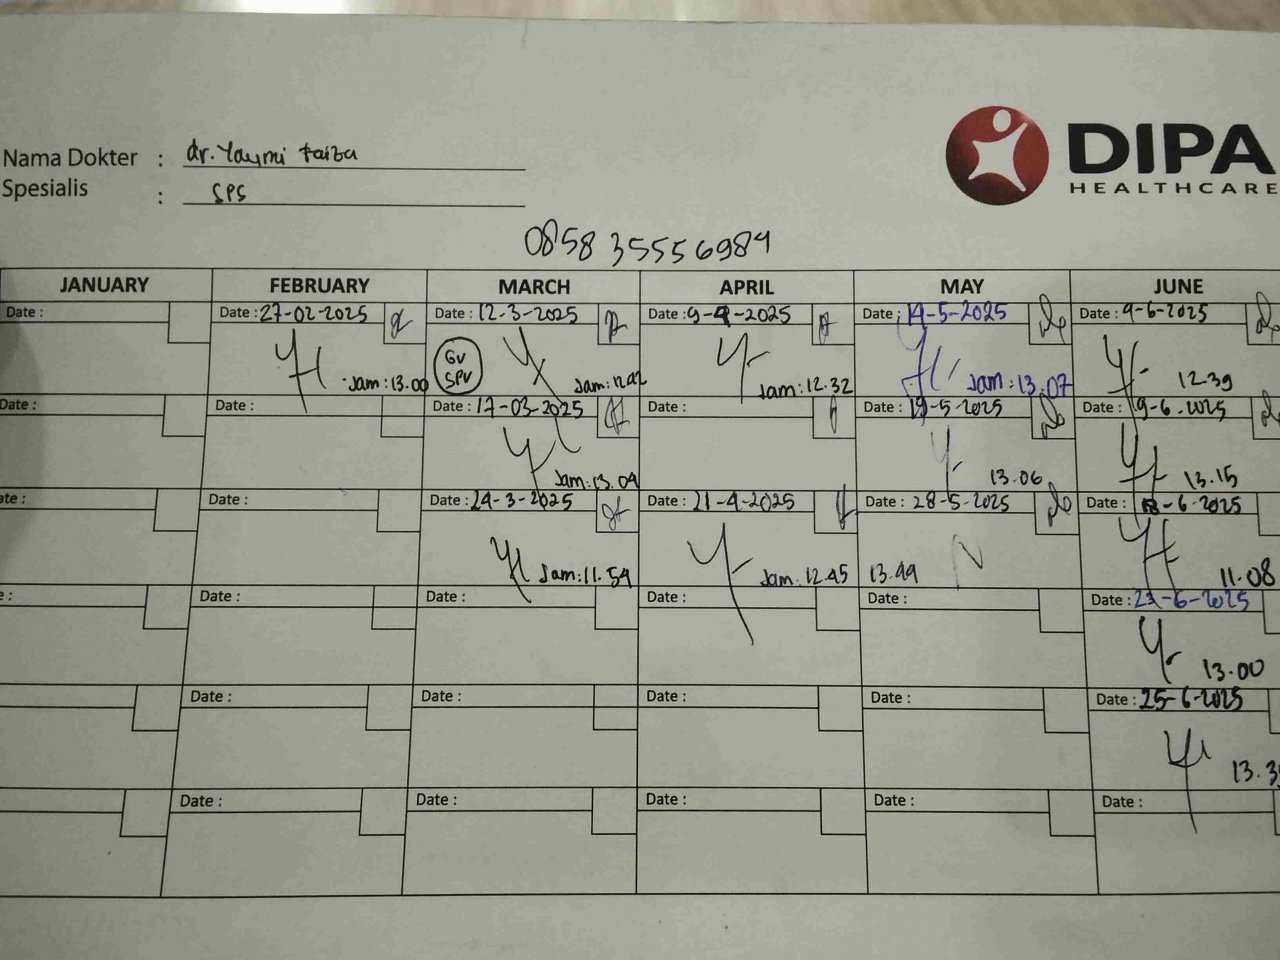 DIPA
HEALTHCARE
Nama Dokter : dr. Yaumi faiza
Spesialis : SPS
0858 35556984
JANUARY FEBRUARY MARCH APRIL MAY JUNE
Date : Date : 27-02-2025 Date : 12-3-2025 Date : 9-4-2025 Date : 14-5-2025 Date : 9-6-2025
Jam : 13.00 GV SPV Jam : 12.02 Jam : 12.32 Jam : 13.07 12.39
Date : Date : Date : 17-03-2025 Date : Date : 19-5-2025 Date : 9-6-2025
Jam : 13.09 13.06 13.15
Date : Date : Date : 24-3-2025 Date : 21-4-2025 Date : 28-5-2025 Date : 18-6-2025
Jam : 11.54 Jam : 12.45 13.49 11.08
Date : Date : Date : Date : Date : 23-6-2025
13.00
Date : Date : Date : Date : Date : 25-6-2025
Date : Date : Date : Date : Date :